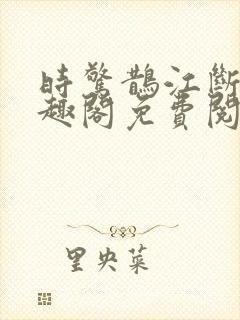 時驚鵲江斷
趣閣免費閱
里央菜